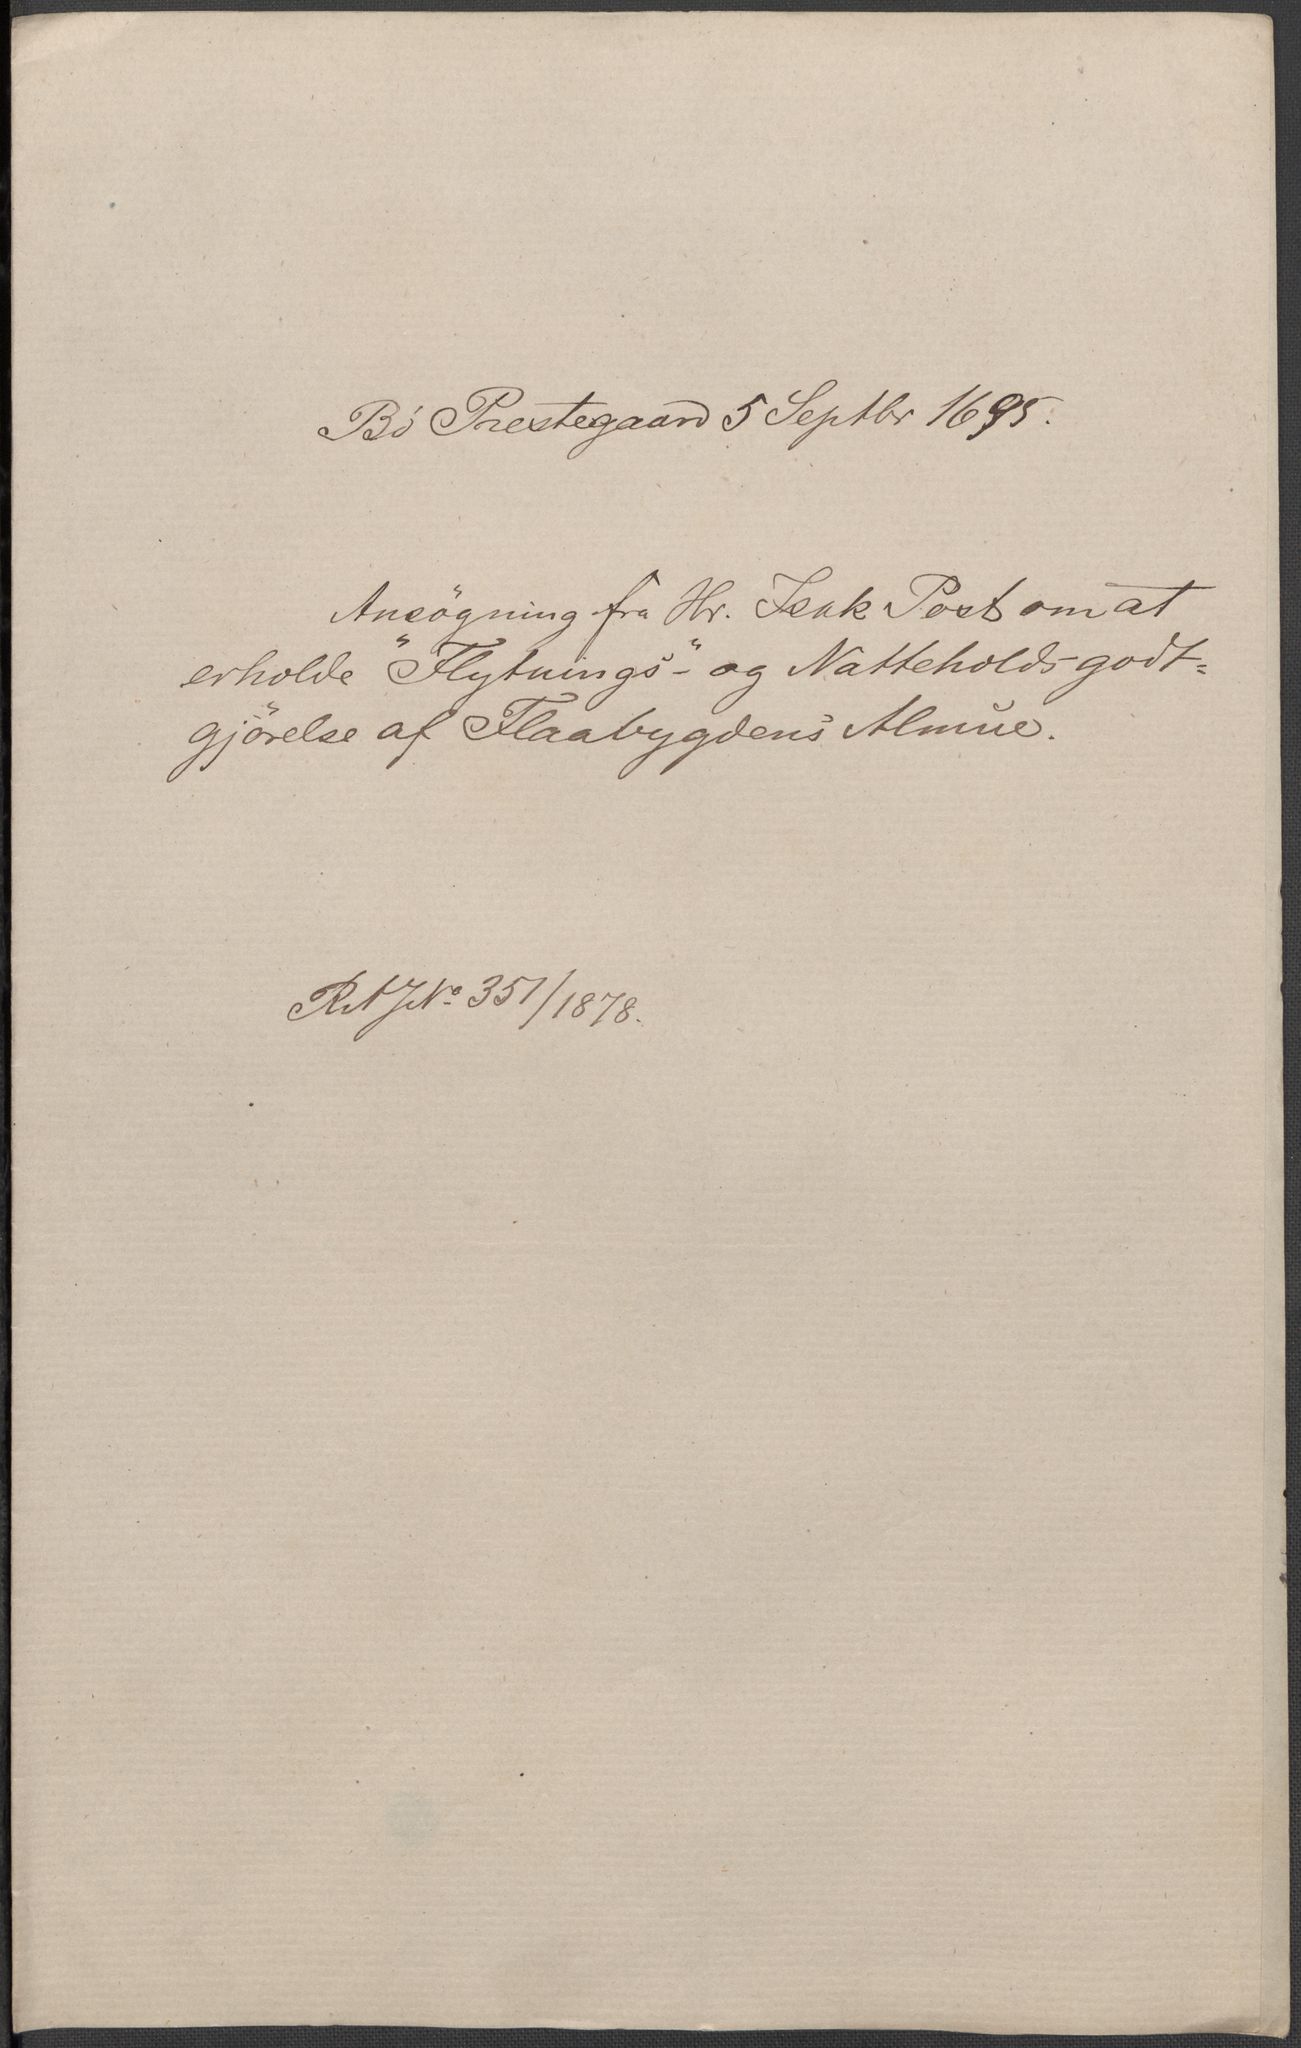 Bö Prestegaard 5 Septbr 1695.
Ansögning fra Hr. Isak Post om at
erholde "Flytnings-" og Natteholds-godt=
gjörelse af Flaabygdens Almue.
RA JNo 351/1878.